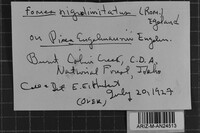 Fomes nigrolimitatus (Rom.)
Egeland
on Picea Engelmannii Engelm.
Burnt Cabin Creek, C.D.A.
National Forest, Idaho
Coll & Det E.E. Hubert
July 20, 1929
(OVER)
ARIZ-M-AN24513